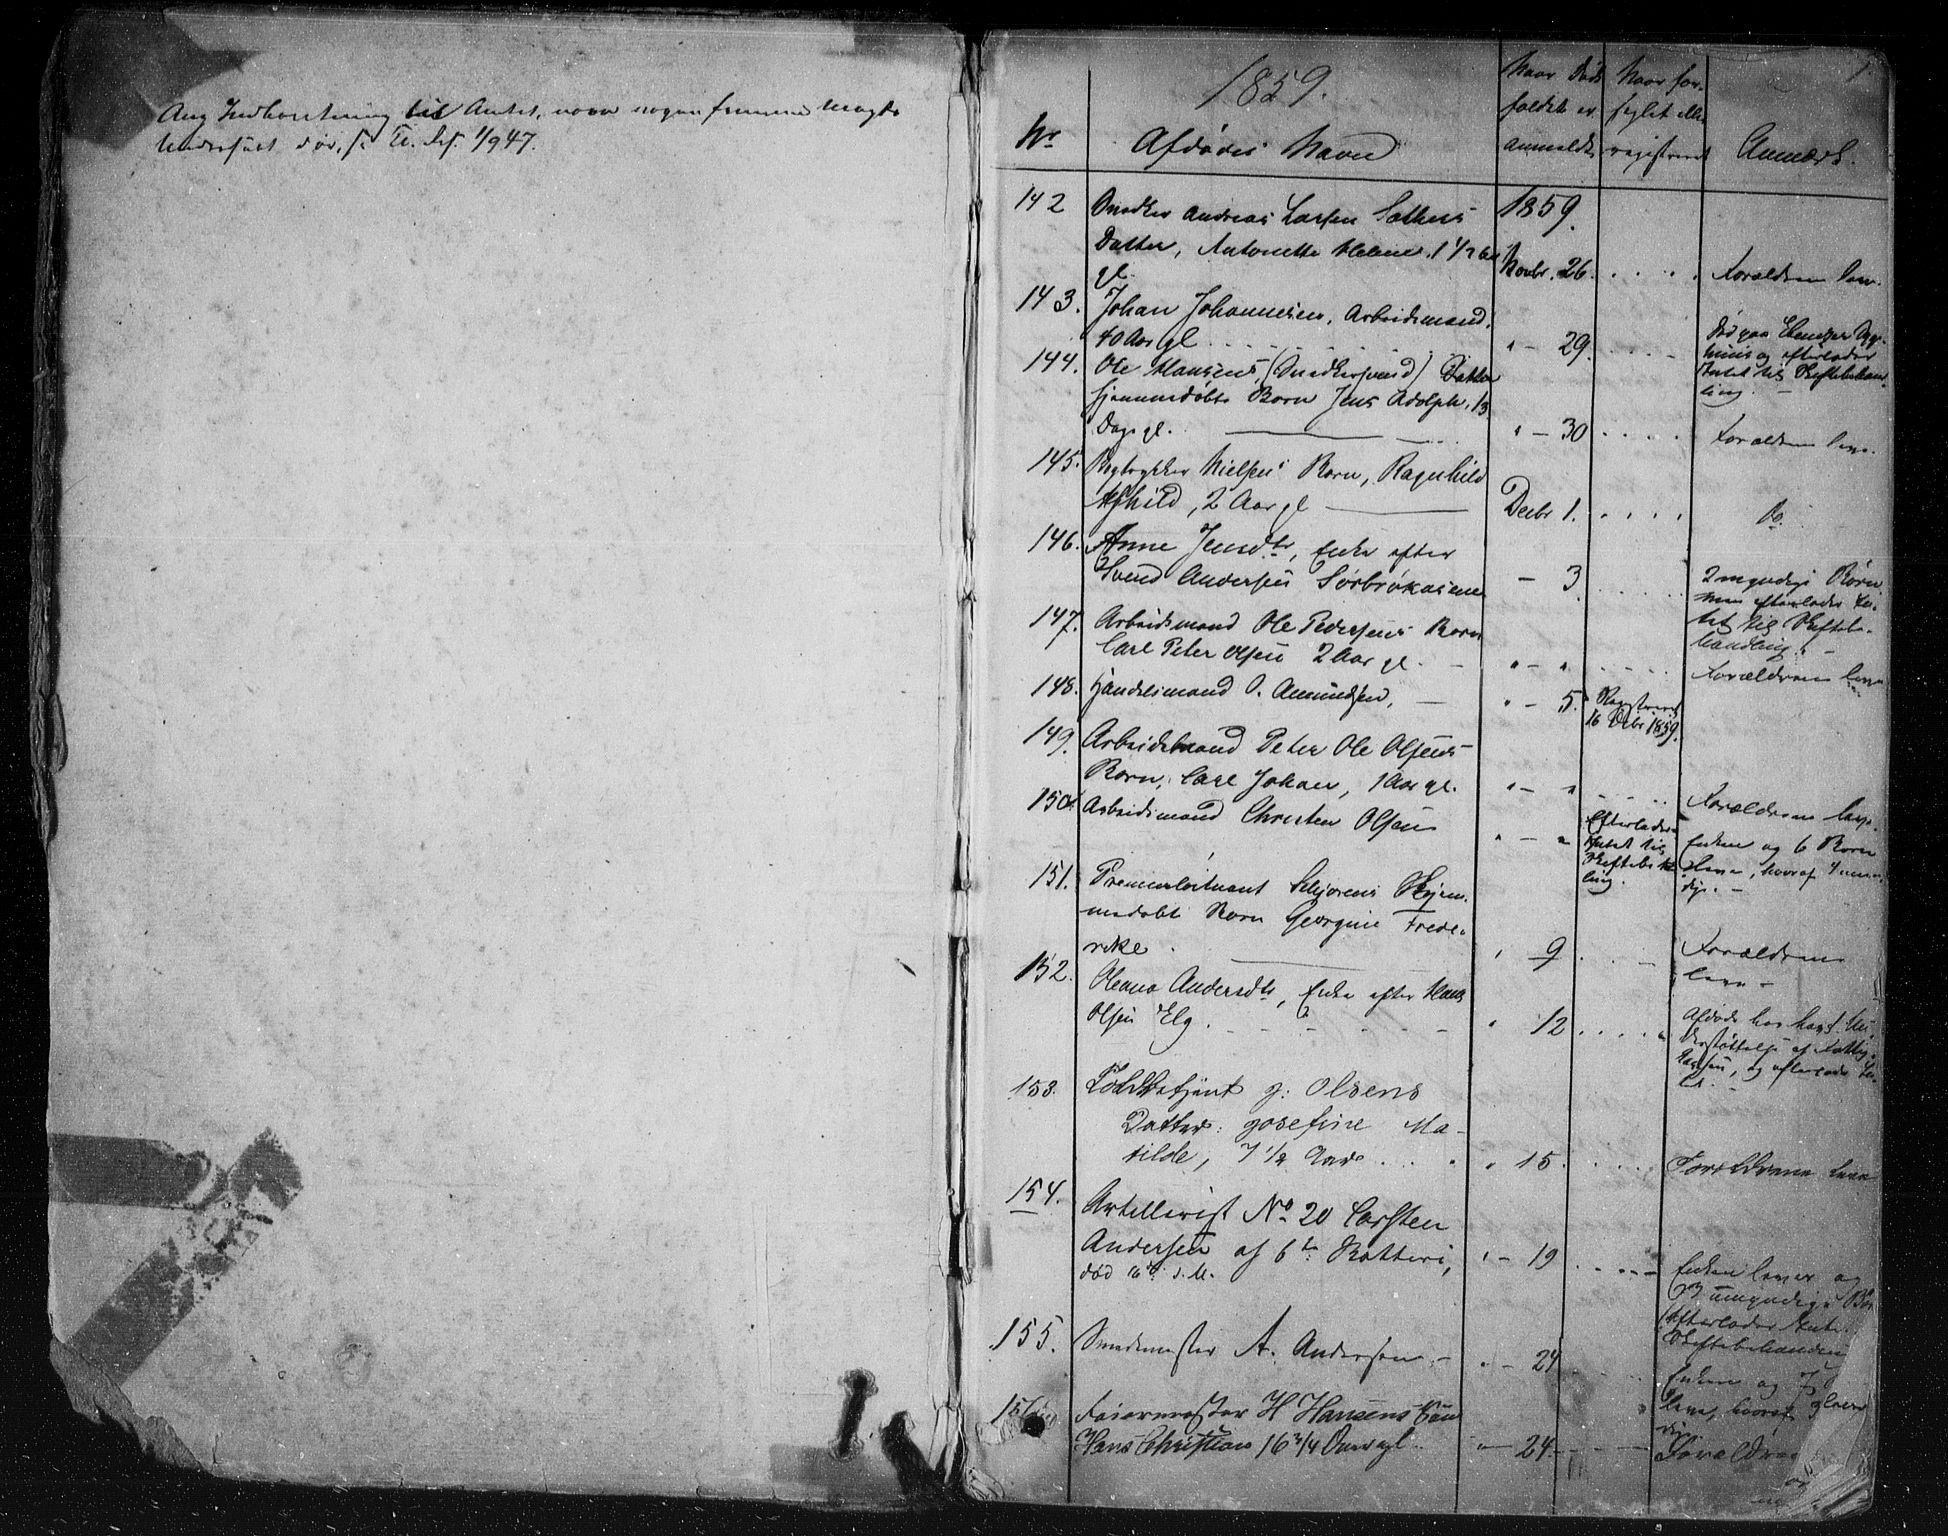 Ang Indberetning til Amtet, naar nogen fremmed Magts
Undersaat dør, 1/9 47.
1.
1859.
Nr
Afdødes Navn
Naar Døds
faldet er
anmeldt
Naar for-
seglet eller
registreret
Anmærk.
142
Snedker Andreas Larsen Sæthers
1859.
Datter, Antonette Helene, 1 1/2
gl.
Novbr. 26.
Forældrene leve.
143.
Johan Johannesen, Arbeidsmand,
40 Aar gl.
" - 29.
Død paa Ebenezer
og efterlader
Intet til Skiftebehand
ling.
144.
Ole Hansens, (Snedkersvend)
hjemmedøbte Barn Jens Adolph, 13
Dage gl.
" - 30
Forældrene leve.
145.
Bogtrykker Nielsens Barn, Ragnhild
Afhild, 2 Aar gl
Decbr 1.
Do.
146.
Anne Jensdtr, Enke efter
Svend Andersen Sørbrøkasene
- 3.
2 myndige Børn
men efterlader In-
tet til Skiftebe-
handling.
147.
Arbeidsmand Ole Pedersens Barn
Carl Peter Olsen 2 Aar gl.
" - "
Forældrene leve
148.
Handelsmand O. Amundsen,
" - 5.
Registreret
16 Decbr 1859.
149.
Arbeidsmand Peter Ole Olsens
Barn, Carl Johan, 1 Aar gl.
" - "
Forældrene leve.
150.
Arbeidsmand Christen Olsen
" - "
Efterlader
Intet til
Skiftebehand
ling.
Enken og 6 Børn
leve, hvoraf 4 umyn
dige.
151.
Premierløitnant Schjørens Hjem-
medøbt Barn Georgine Frede-
rikke.
" 9
Forældrene
leve -
152.
Oleana Andersdtr, Enke efter Hans
Olsen Elg.
" 12
Afdøde har havt Un-
derstøttelse af Fattig-
kassen, og efterlader In-
tet.
153.
Toldbetjent J: Olsens
Datter: Josefine Ma-
tilde, 7 1/2 Aar
" 15.
Forældrene leve
154.
Artellerist No 20 Carsten
Andersen af 6te Batteri,
død 16de d. M.
" - 19
Enken lever og
3 umyndige Bør
Efterlader Intet
Skiftebehandling
155.
Smedemester A. Andersen -
" - 24
Enken og 7
leve, hvoraf
156.
Feiermester H Hansens Søn
Hans Christian 16 3/4 Aar gl.
" - 24.
Forældre